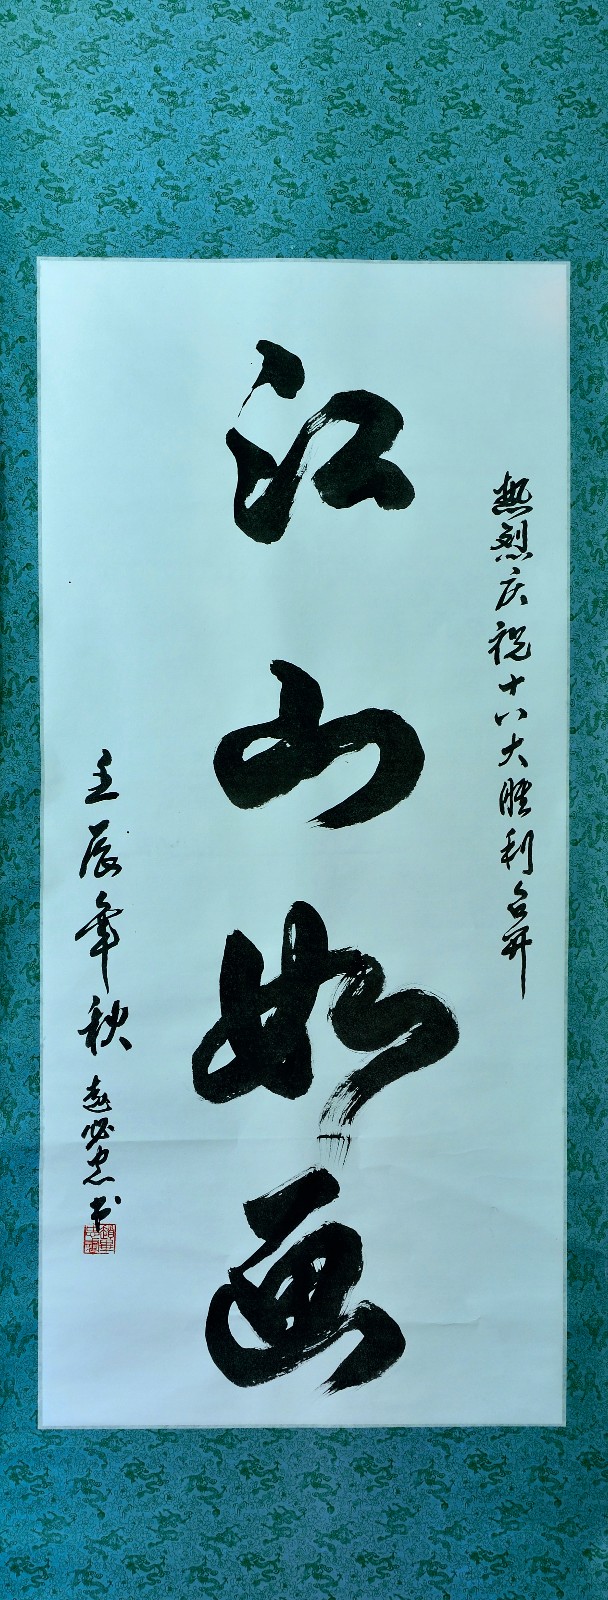 热烈庆祝十八大胜利召开
江山如画
壬辰年秋
赵必忠书